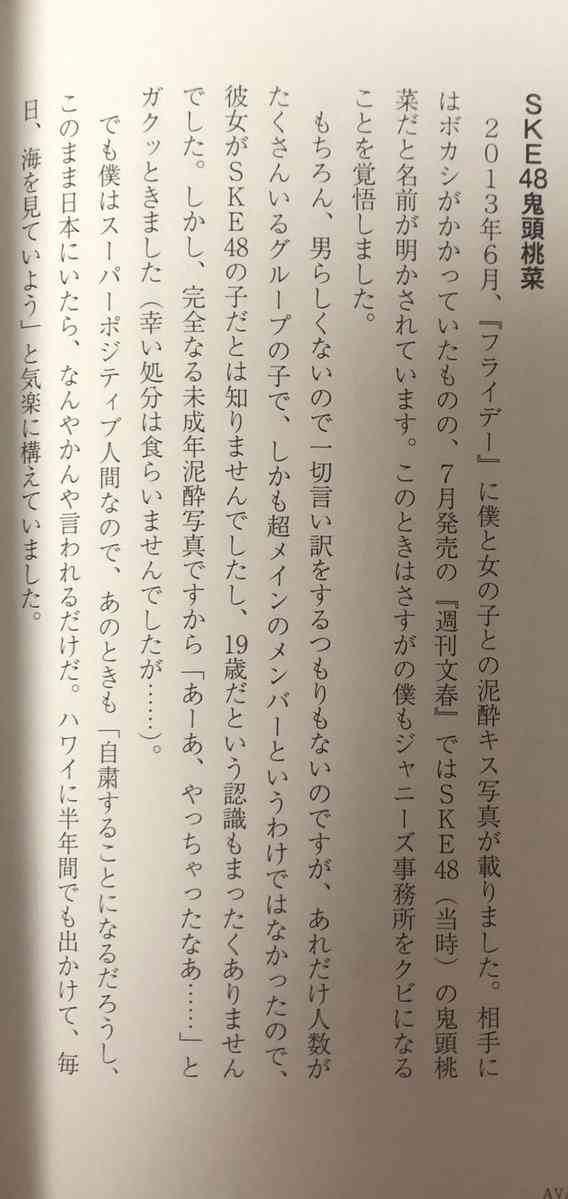 SKE48鬼頭桃菜
2013年6月、『フライデー』に僕と女の子との泥酔キス写真が載りました。相手に
はボカシがかかっていたものの、7月発売の『週刊文春』ではSKE48（当時）の鬼頭桃
菜だと名前が明かされています。このときはさすがの僕もジャニーズ事務所をクビになる
ことを覚悟しました。
もちろん、男らしくないので一切言い訳をするつもりもないのですが、あれだけ人数が
たくさんいるグループの子で、しかも超メインのメンバーというわけではなかったので、
彼女がSKE48の子だとは知りませんでしたし、19歳だという認識もまったくありません
でした。しかし、完全なる未成年泥酔写真ですから「あーあ、やっちゃったなあ……」と
ガクッときました（幸い処分は食らいませんでしたが……）。
でも僕はスーパーポジティブ人間なので、あのときも「自粛することになるだろうし、
このまま日本にいたら、なんやかんや言われるだけだ。ハワイに半年間でも出かけて、毎
日、海を見ていよう」と気楽に構えていました。
AV